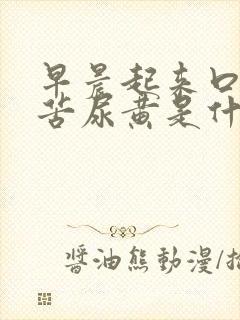 早晨起来口
苦尿黄是什
醬油熊動漫/插